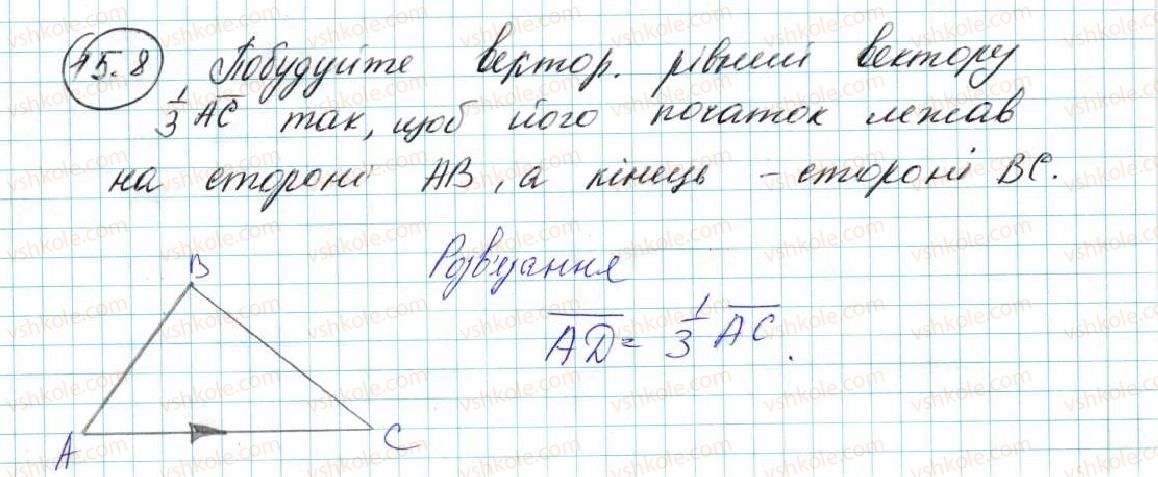 15.8 Побудуйте вектор. рівний вектору
1/3 AC так, щоб його початок лежав
на стороні AB, а кінець - стороні BC.
Розв'язання
AD = 1/3 AC.
B
A
C
vshkole.com